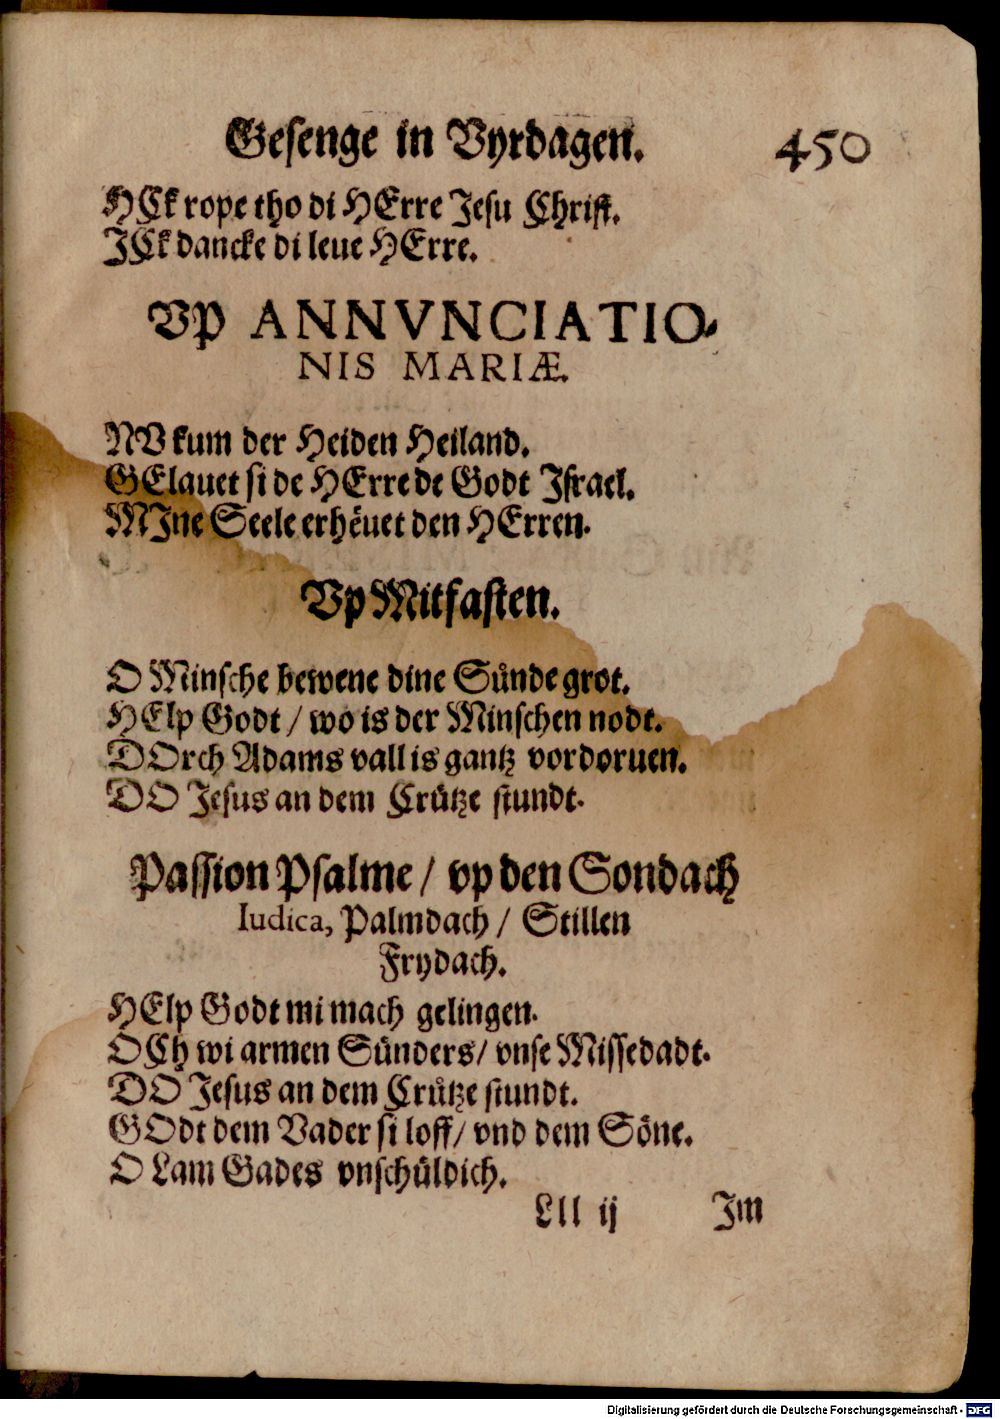 Gesenge in Vyrdagen. 450
HCk rope tho di HErre Jesu Christ.
JCk dancke di leue HErre.
Vp ANNVNCIATIO-
NIS MARIÆ.
NV kum der Heiden Heiland.
GElauet si de HErre de Godt Israel.
MIne Seele erhëuet den HErren.
Vp Mitfasten.
O Minsche bewene dine Sünde grot.
HElp Godt / wo is der Minschen nodt.
DOrch Adams vall is gantz vordoruen.
DO Jesus an dem Crütze stundt.
Passion Psalme / vp den Sondach
Iudica, Palmdach / Stillen
Frydach.
HElp Godt mi mach gelingen.
OCh wi armen Sünders / vnse Missedadt.
DO Jesus an dem Crütze stundt.
GOdt dem Vader si loff / vnd dem Söne.
O Lam Gades vnschüldich.
Lll ij Jm
Digitalisierung gefördert durch die Deutsche Forschungsgemeinschaft - DFG